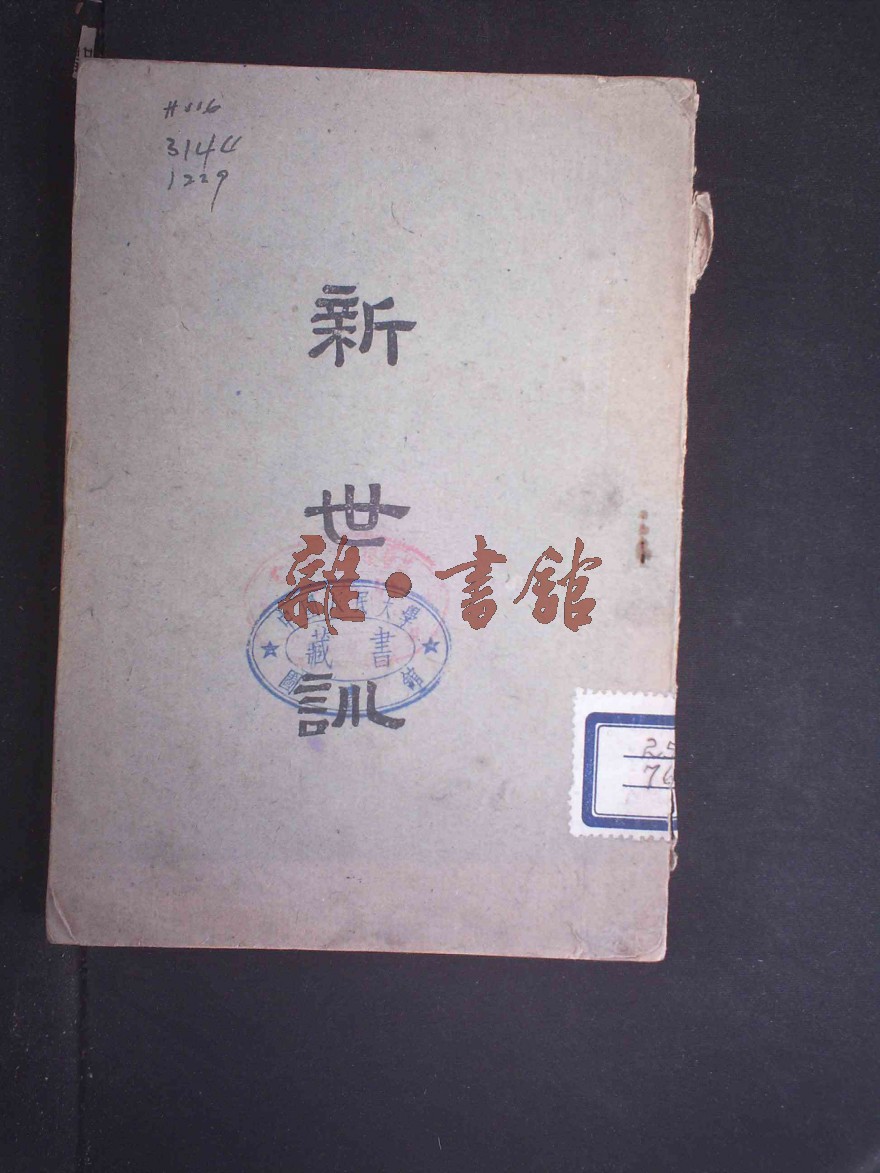 3144
1229
新
世
訓
雜·書館
大學
藏書
圖
25
76